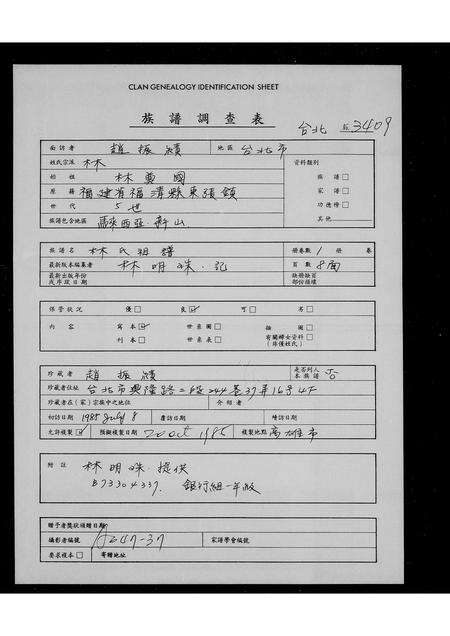 CLAN GENEALOGY IDENTIFICATION SHEET
族譜調查表
台北 3409
面訪者 趙振績 地區 台北市
姓氏宗派 林 資料類別
始祖 林貴國 族譜□
原籍 福建省福清縣東張鎮 家譜□
世代 5世 功德榜□
族譜包含地區 馬來西亞.新山 其他
族譜名 林氏祖譜 冊卷數 1 冊 卷
最新版本編纂者 林明珠.記 頁數 8面
最新出版年份或序跋日期 缺冊缺頁部份描繪
保管狀況 優□ 良☑ 可□ 劣□
內容 寫本☑ 世系圖□ 插圖□
刊本□ 世系表□ 有關婦女資料□(非僅姓氏)
珍藏者 趙振績 是否列入本族譜 否
珍藏者住址 台北市興隆路二段244巷37弄16号4F
珍藏者在(家)宗族中之地位 介紹者
初訪日期 1985 July 8 覆訪日期 時訪日期
允許複製☑ 預擬複製日期 20 oct 1985 複製地點 高雄市
附註 林明珠.提供
B73304337. 銀行組一年級
贈予者獎狀頒贈日期
攝影者編號 47-37 家譜學會編號
要求複本□ 寄贈地址